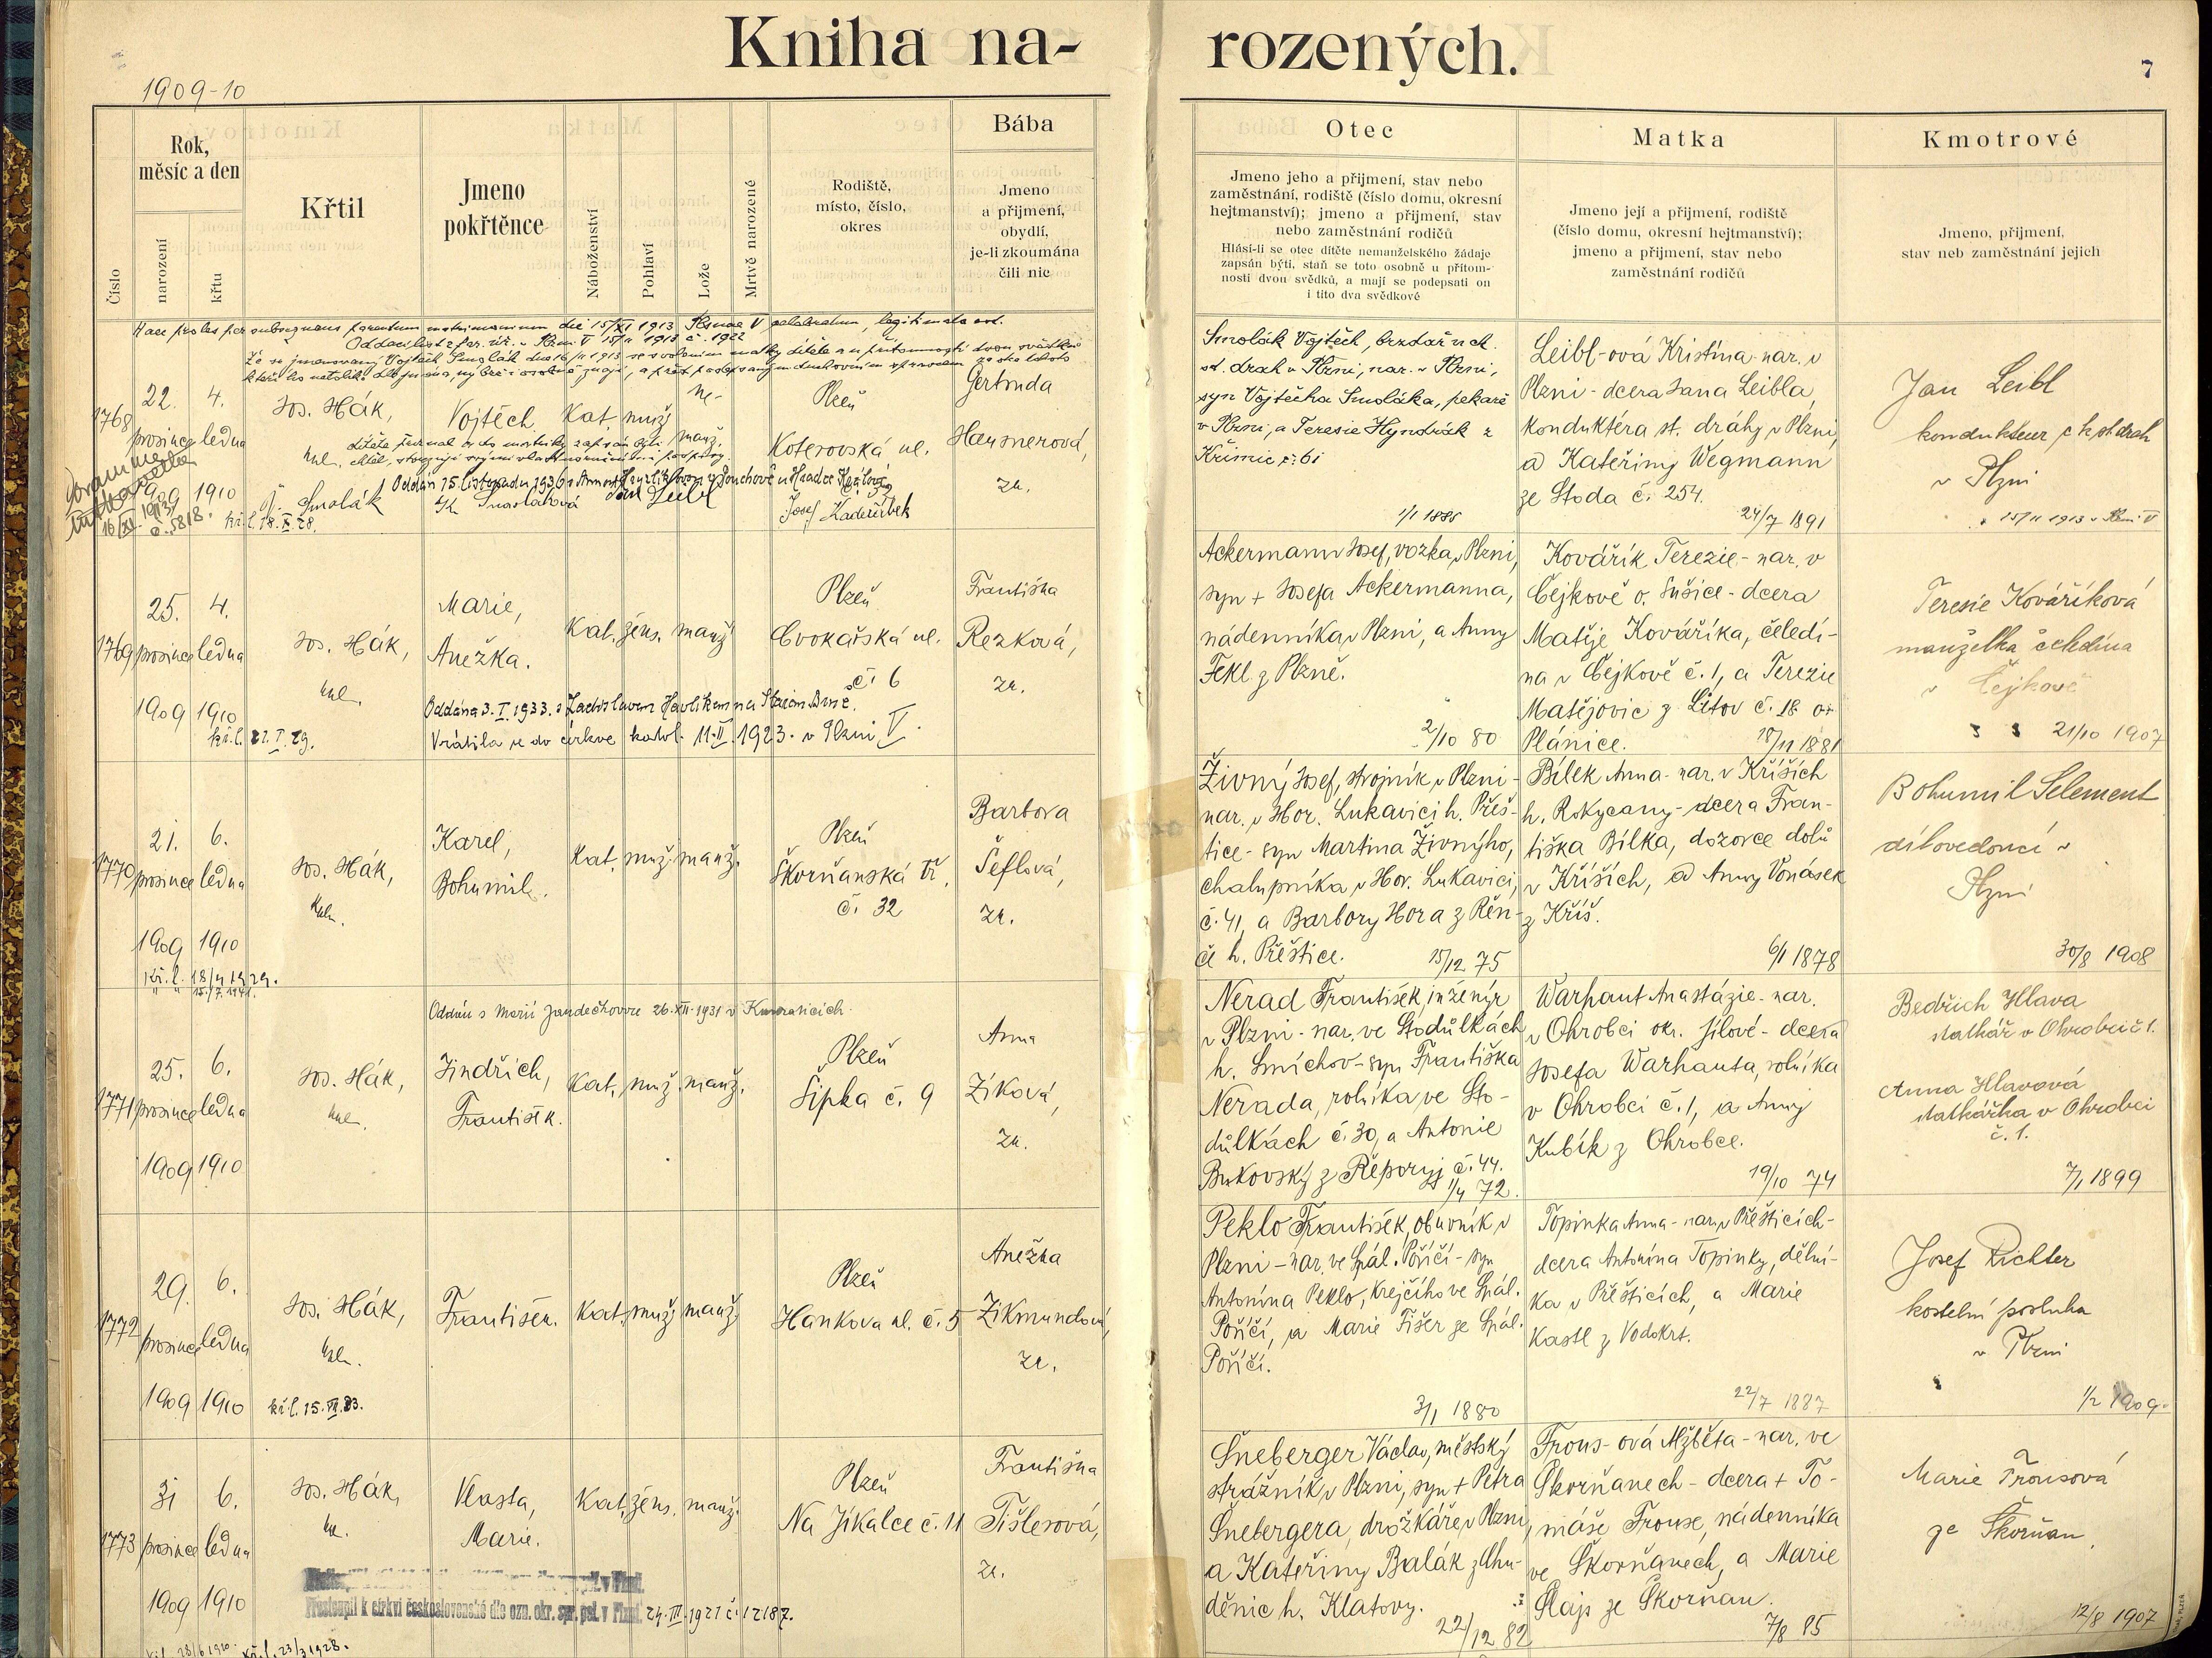 Kniha na-
rozených.
7
1909-10
Číslo
Rok,
měsíc a den
narození
křtu
Křtil
Jmeno
pokřtěnce
Náboženství
Pohlaví
Lože
Mrtvě narozené
Rodiště,
místo, číslo,
okres
Bába
Jmeno
a přijmení,
obydlí,
je-li zkoumána
čili nic
Otec
Jmeno jeho a přijmení, stav nebo
zaměstnání, rodiště (číslo domu, okresní
hejtmanství); jmeno a přijmení, stav
nebo zaměstnání rodičů
Hlásí-li se otec dítěte nemanželského žádaje
zapsán býti, staň se toto osobně u přítom-
nosti dvou svědků, a mají se podepsati on
i tito dva svědkové
Matka
Jmeno její a přijmení, rodiště
(číslo domu, okresní hejtmanství);
jmeno a přijmení, stav nebo
zaměstnání rodičů
Kmotrové
Jmeno, přijmení,
stav neb zaměstnání jejich
Haec proles per subsequens parentum matrimonium die 15/XI 1913 Plsnae V celebratum, legitimata est.
Oddací list z far. úř. v Plzni V 15/11 1913 č. 1922
1768
22. prosince 1909
4. ledna 1910
Jos. Hák,
Vojtěch
Kat. muž.
ne-
manž.
Plzeň
Koterovská ul.
Gertruda
Hausnerová,
zk.
Smolák
Smoláková
Jan Leibl
16/XI 1913
č. 5818.
Smolák Vojtěch, brzdař u ck.
st. drah v Plzni, nar. v Plzni,
syn Vojtěcha Smoláka, pekaře
v Plzni, a Teresie Hyndrák z
Křimic č. 61
1/1 1886
Leibl-ová Kristina nar. v
Plzni - dcera Jana Leibla,
konduktéra st. dráhy v Plzni,
a Kateřiny Wegmann
ze Stoda č. 254.
24/7 1891
Jan Leibl
kondukteur c k st drah
v Plzni
15/11 1913 v Plzni V
1769
25. prosince 1909
4. ledna 1910
Jos. Hák,
Marie,
Anežka.
Kat. žens. manž.
Plzeň
Cvokařská ul.
č. 6
Františka
Rezková,
zk.
Oddána 3. I. 1933. s Ladislavem Havlíkem na Starém Brně.
Vrátila se do církve katol. 11. II. 1923. v Plzni V.
Ackermann Josef, vozka v Plzni,
syn + Josefa Ackermanna,
nádenníka v Plzni, a Anny
Fekl z Plzně.
2/10 80
Kovářík Terezie - nar. v
Čejkově o. Sušice - dcera
Matěje Kováříka, čeledí-
na v Čejkově č. 1, a Terezie
Matějovic z Lítov č. 18 o.
Plánice.
18/11 1881
Teresie Kováříková
manželka čeledína
v Čejkově
21/10 1907
1770
21. prosince 1909
6. ledna 1910
Jos. Hák,
Karel,
Bohumil.
Kat. muž. manž.
Plzeň
Škorňanská tř.
č. 32
Barbora
Šeflová,
zk.
Živný Josef, strojník v Plzni -
nar. v Hor. Lukavici h. Přeš-
tice - syn Martina Živnýho,
chalupníka v Hor. Lukavici,
č. 41, a Barbory Hora z Řen-
č h. Přeštice.
15/12 75
Bílek Anna - nar. v Kříších
h. Rokycany - dcera Fran-
tiška Bílka, dozorce dolů
v Kříších, a Anny Vonásek
z Kříš.
6/1 1878
Bohumil Selement
dílovedoucí v
Plzni
30/8 1908
1771
25. prosince 1909
6. ledna 1910
Jos. Hák,
Jindřich,
František.
Kat. muž. manž.
Plzeň
Šipka č. 9
Anna
Zíková,
zk.
Nerad František, inženýr
v Plzni - nar. ve Stodůlkách
h. Smíchov - syn Františka
Nerada, rolníka, ve Sto-
důlkách č. 30, a Antonie
Bukovský z Řeporyj č. 44.
1/4 72.
Warhaut Anastázie - nar.
v Ohrobci okr. Jílové - dcera
Josefa Warhauta, rolníka
v Ohrobci č. 1, a Anny
Kubík z Ohrobce.
19/10 74
Bedřich Hlava
statkář v Ohrobci č 1.
Anna Hlavová
statkářka v Ohrobci
č. 1.
7/1 1899
1772
29. prosince 1909
6. ledna 1910
Jos. Hák,
František.
Kat. muž. manž.
Plzeň
Hankova ul. č. 5
Anežka
Zikmundová,
zk.
Peklo František, obuvník v
Plzni - nar. ve Spál. Poříčí - syn
Antonína Peklo, krejčího ve Spál.
Poříčí, a Marie Fišer ze Spál.
Poříčí.
3/1 1880
Topinka Anna - nar. v Přešticích -
dcera Antonína Topinky, dělní-
ka v Přešticích, a Marie
Kastl z Vodokrt.
22/7 1887
Josef Richter
kostelní posluha
v Plzni
1/2 1909.
1773
31 prosince 1909
6. ledna 1910
Jos. Hák,
Vlasta,
Marie.
Kat. žens. manž.
Plzeň
Na Jíkalce č. 11
Františka
Tišlerová,
zk.
Přestoupil k církvi československé dle ozn. okr. spr. pol. v Plzni 24. III. 1921 č. 12187.
kř. l. 23/3 1928.
Šneberger Václav, městský
strážník v Plzni, syn + Petra
Šnebergera, drožkáře v Plzni,
a Kateřiny Balák z Chu-
děnic h. Klatovy.
22/12 82
Frous-ová Alžběta - nar. ve
Škorňanech - dcera + To-
máše Frouse, nádenníka
ve Škorňanech, a Marie
Šlajs ze Škorňan.
7/8 85
Marie Frousová
ze Škorňan.
12/8 1907